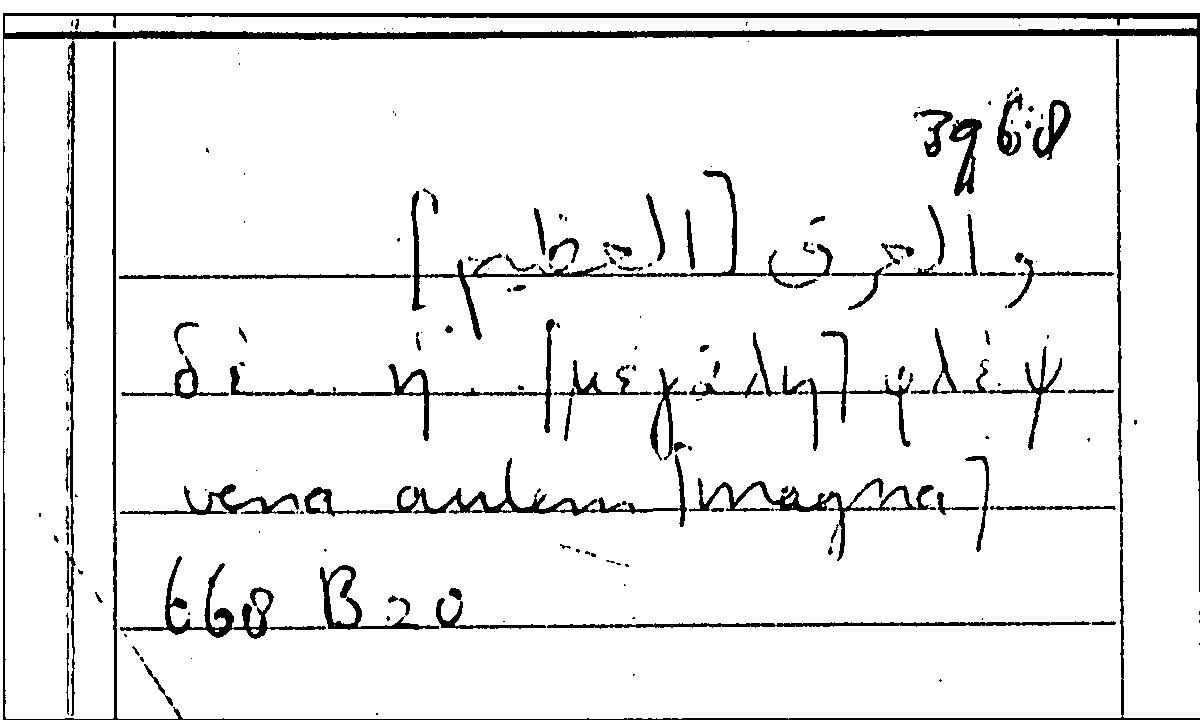 3968
والعرق [العظيم]
δὲ .. ἡ .. [μεγάλη] φλέψ
vena autem [magna]
668 B 20